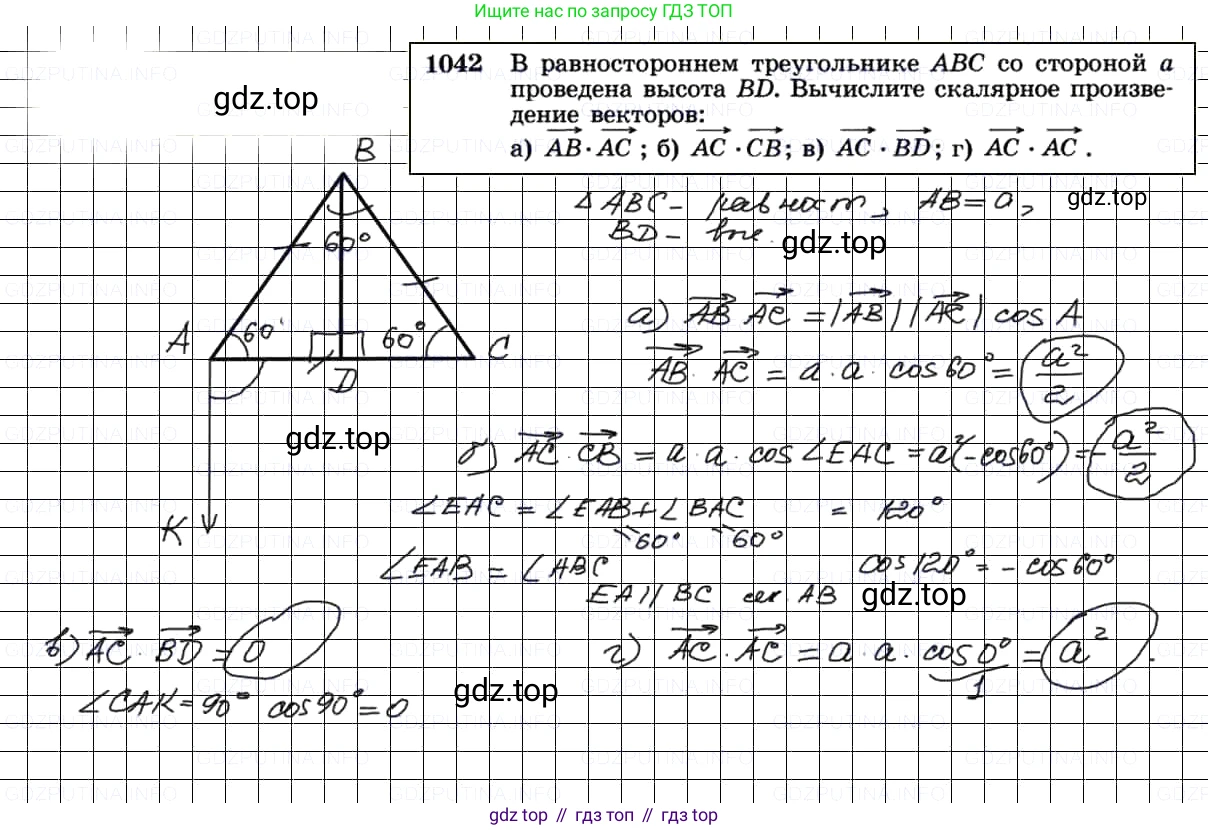 Ищите нас по запросу ГДЗ ТОП
1042 В равностороннем треугольнике ABC со стороной a
проведена высота BD. Вычислите скалярное произве-
дение векторов:
а) AB · AC ; б) AC · CB; в) AC · BD; г) AC · AC .
gdz.top
B
Δ ABC - равност, AB = a,
gdz.top
BD - выс.
gdz.top
60°
а) AB AC = |AB| |AC| cos A
A 60° 60° C
AB · AC = a · a · cos60° = a²/2
D
gdz.top
б) AC · CB = a · a · cos∠EAC = a²(-cos60°) = -a²/2
∠EAC = ∠EAB + ∠BAC = 120°
K
60° 60°
∠EAB = ∠ABC cos120° = - cos60°
EA || BC сек. AB
gdz.top
в) AC · BD = 0
г) AC · AC = a · a · cos0° = a².
1
∠CAK = 90° cos90° = 0
gdz.top
gdz.top // гдз топ // gdz top